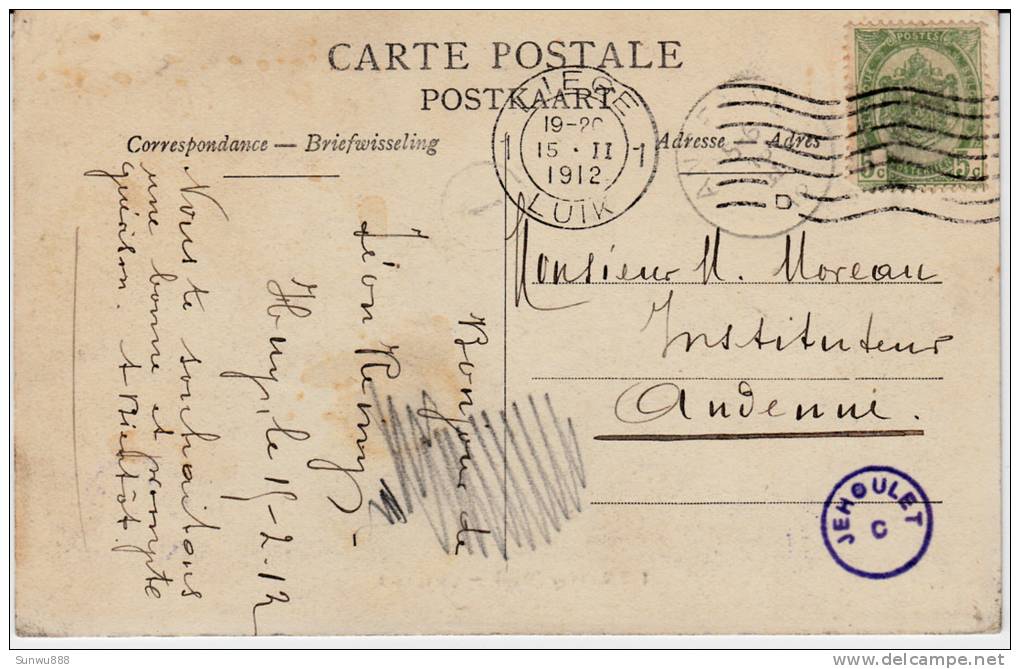 CARTE POSTALE
POSTKAART
Correspondance — Briefwisseling
Adresse
Adres
LIEGE
19-20
15 · II
1912
LUIK
1
1
POSTES
5c
5c
Monsieur M. Moreau
Instituteur
Andenne.
JEHOULET
C
Bonjour de
Léon Remy -
Huy, le 15-2-12
Nous te souhaitons
une bonne et prompte
guérison. A bientôt.
Sunwu888
delcampe.net